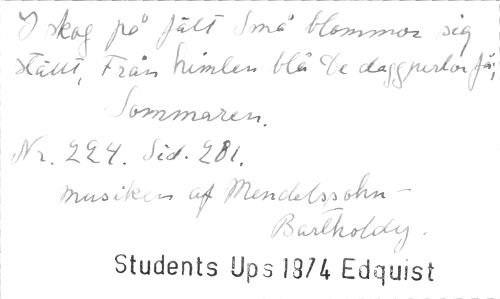 I skog på fält Små blommor sig
ställt, Från himlen blå De daggperlor få;
Sommaren.
Nr. 224. Sid. 281.
musiken af Mendelssohn-
Bartholdy.
Students Ups 1874 Edquist